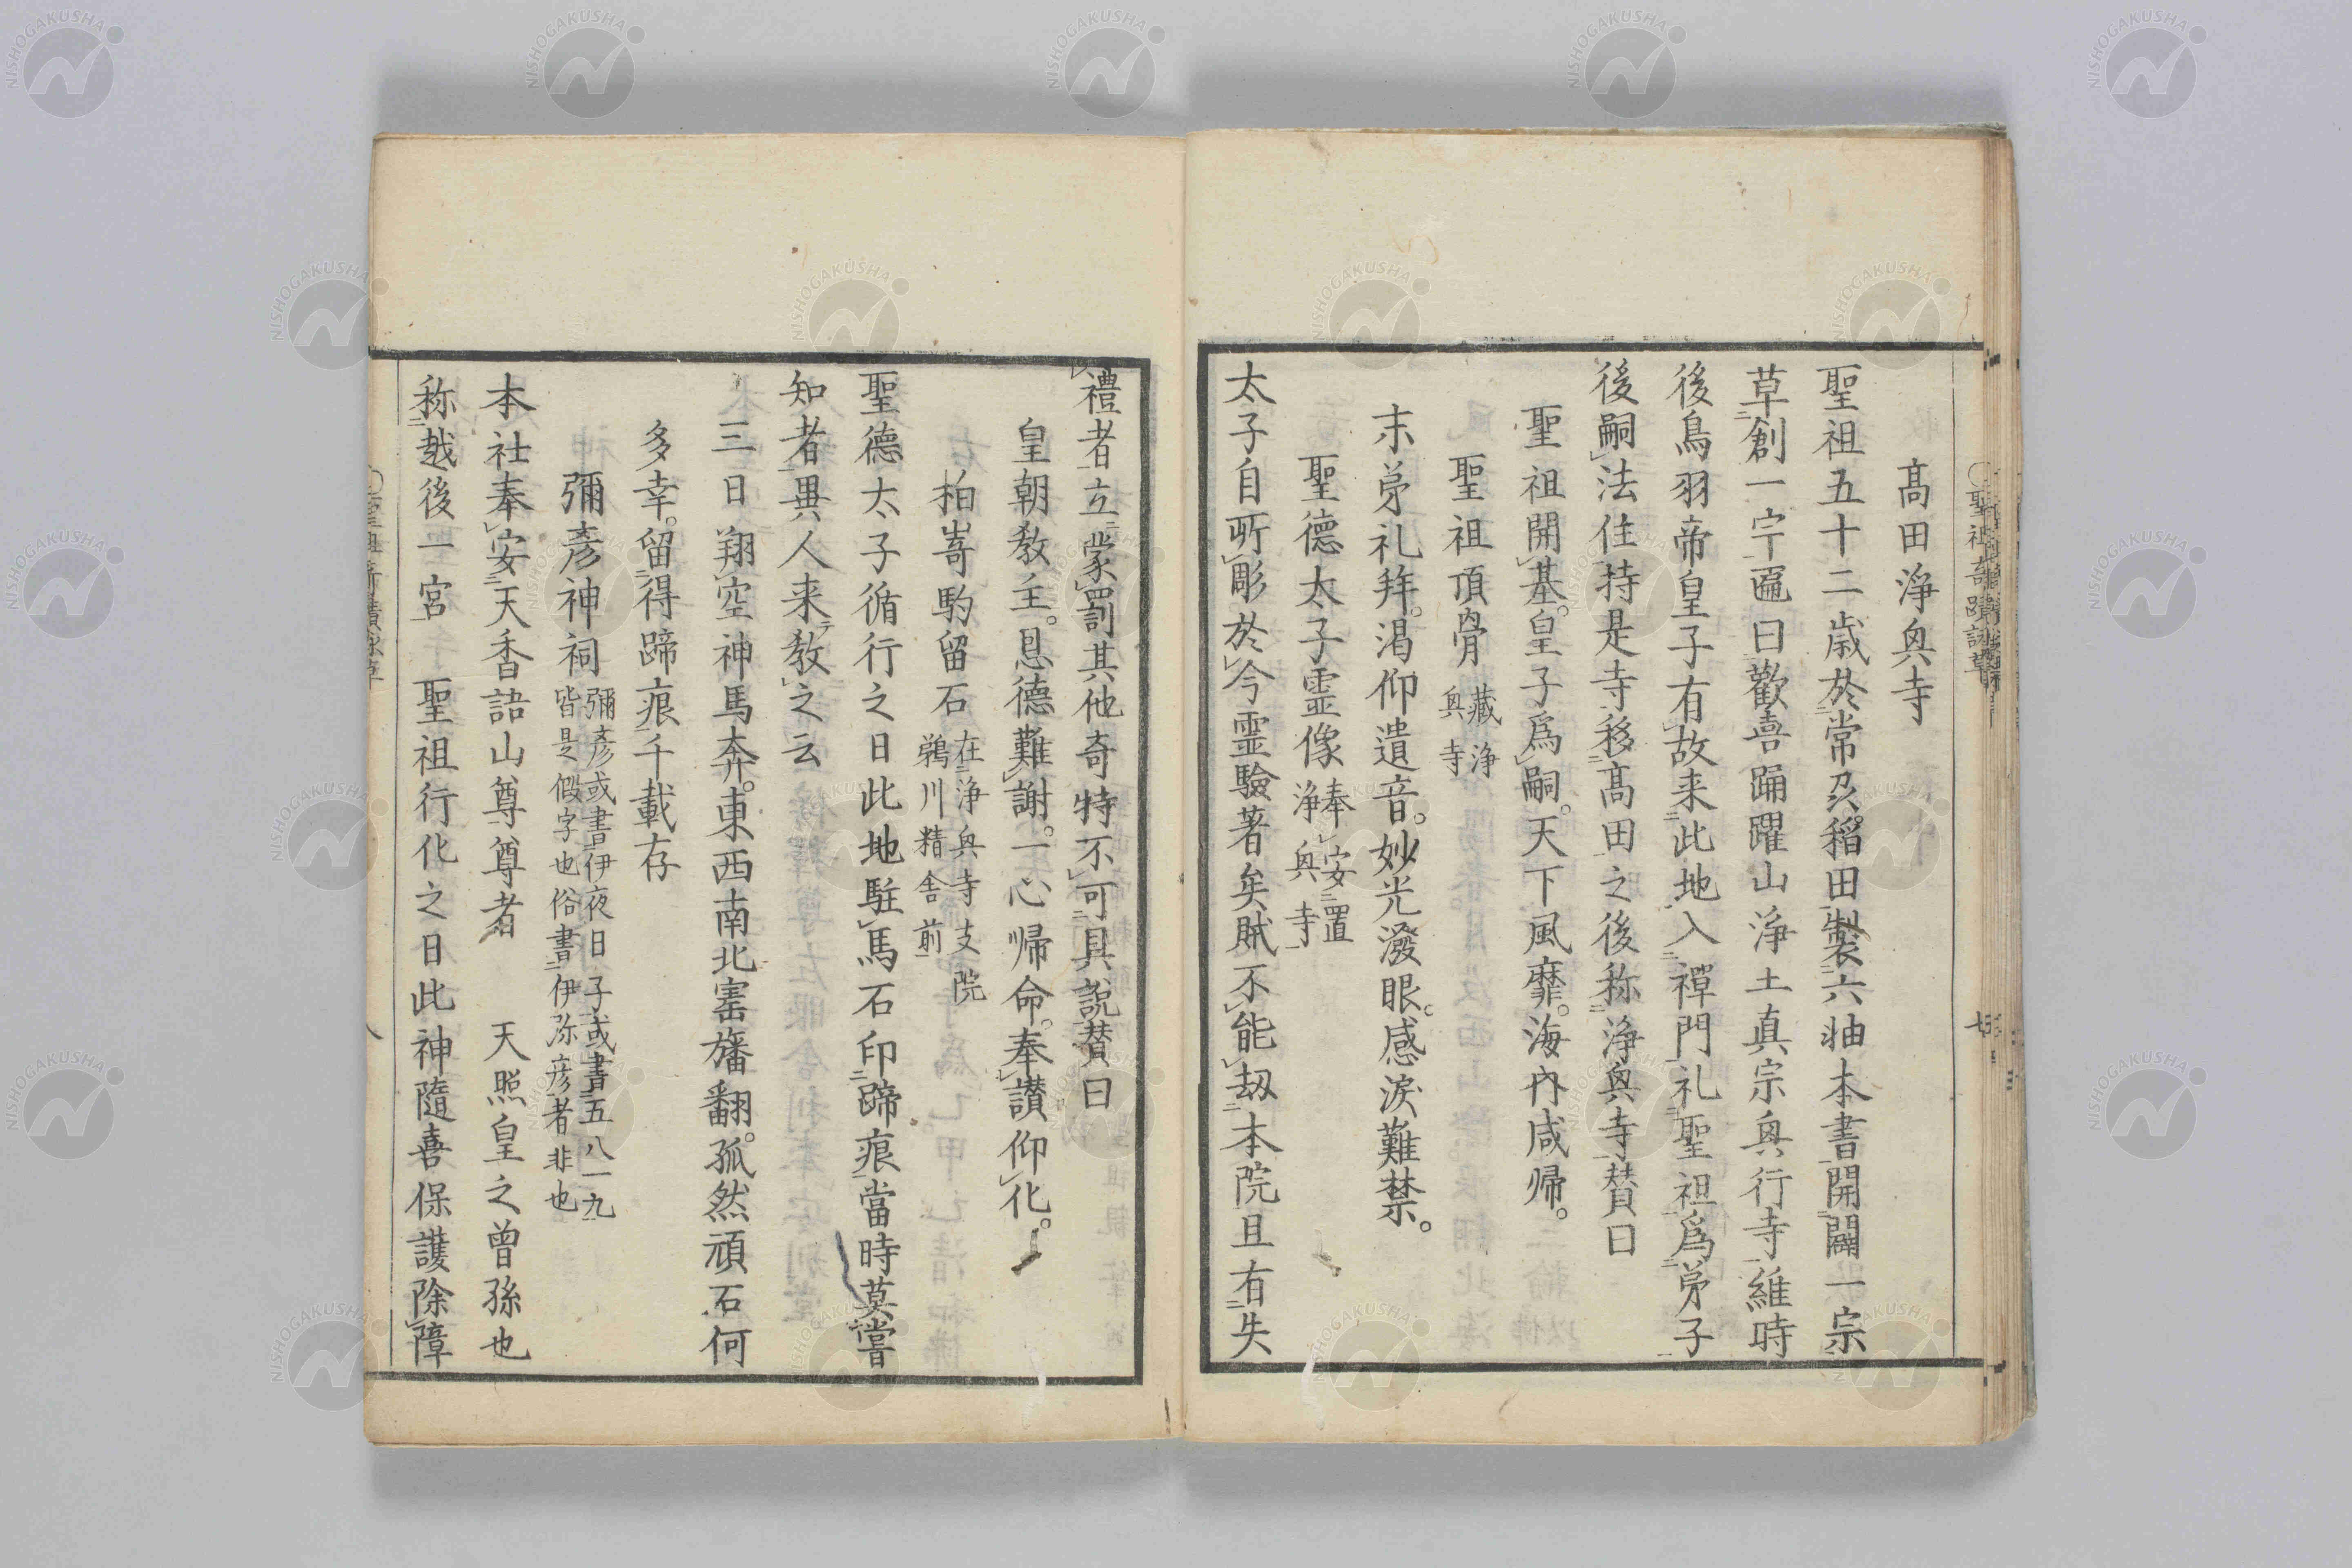 高田淨興寺
聖祖五十二歳於常刕稻田製六軸本書開闢一宗
草創一宇匾曰歡喜踊躍山淨土真宗興行寺維時
後鳥羽帝皇子有故来此地入禪門礼聖祖爲弟子
後嗣法住持是寺移高田之後称淨興寺賛曰
聖祖開基。皇子爲嗣。天下風靡。海内咸帰。
聖祖頂骨 藏淨興寺
末弟礼拜。渴仰遺音。妙光潑眼。感淚難禁。
聖德太子霊像 奉安置淨興寺
太子自所彫於今霊驗著矣賊不能刼本院且有失
禮者立蒙罰其他奇特不可具說賛曰
皇朝教主。恩德難謝。一心帰命。奉讃仰化。
柏嵜駒留石 在淨興寺支院鵜川精舎前
聖德太子循行之日此地駐馬石印蹄痕當時莫嘗
知者異人来教之云
三日翔空神馬奔。東西南北窰旛翻。孤然頑石何
多幸。留得蹄痕千載存
彌彦神祠 彌彦或書伊夜日子或書五八一九皆是假字也俗書伊弥彦者非也
本社奉安天香語山尊尊者 天照皇之曽孫也
称越後一宮 聖祖行化之日此神隨喜保護除障
NISHOGAKUSHA